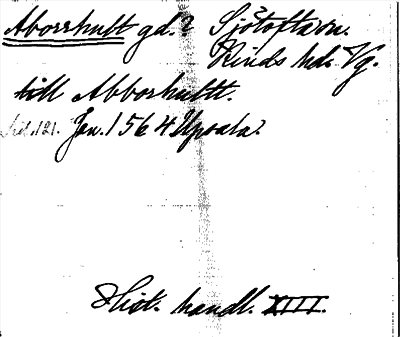 Aborrhult gd.? Sjötofta sn.
Kinds hd. Vg.
till Abborhultt.
sid. 121. Jan. 1564 Upsala.
Hist. handl. XIII.